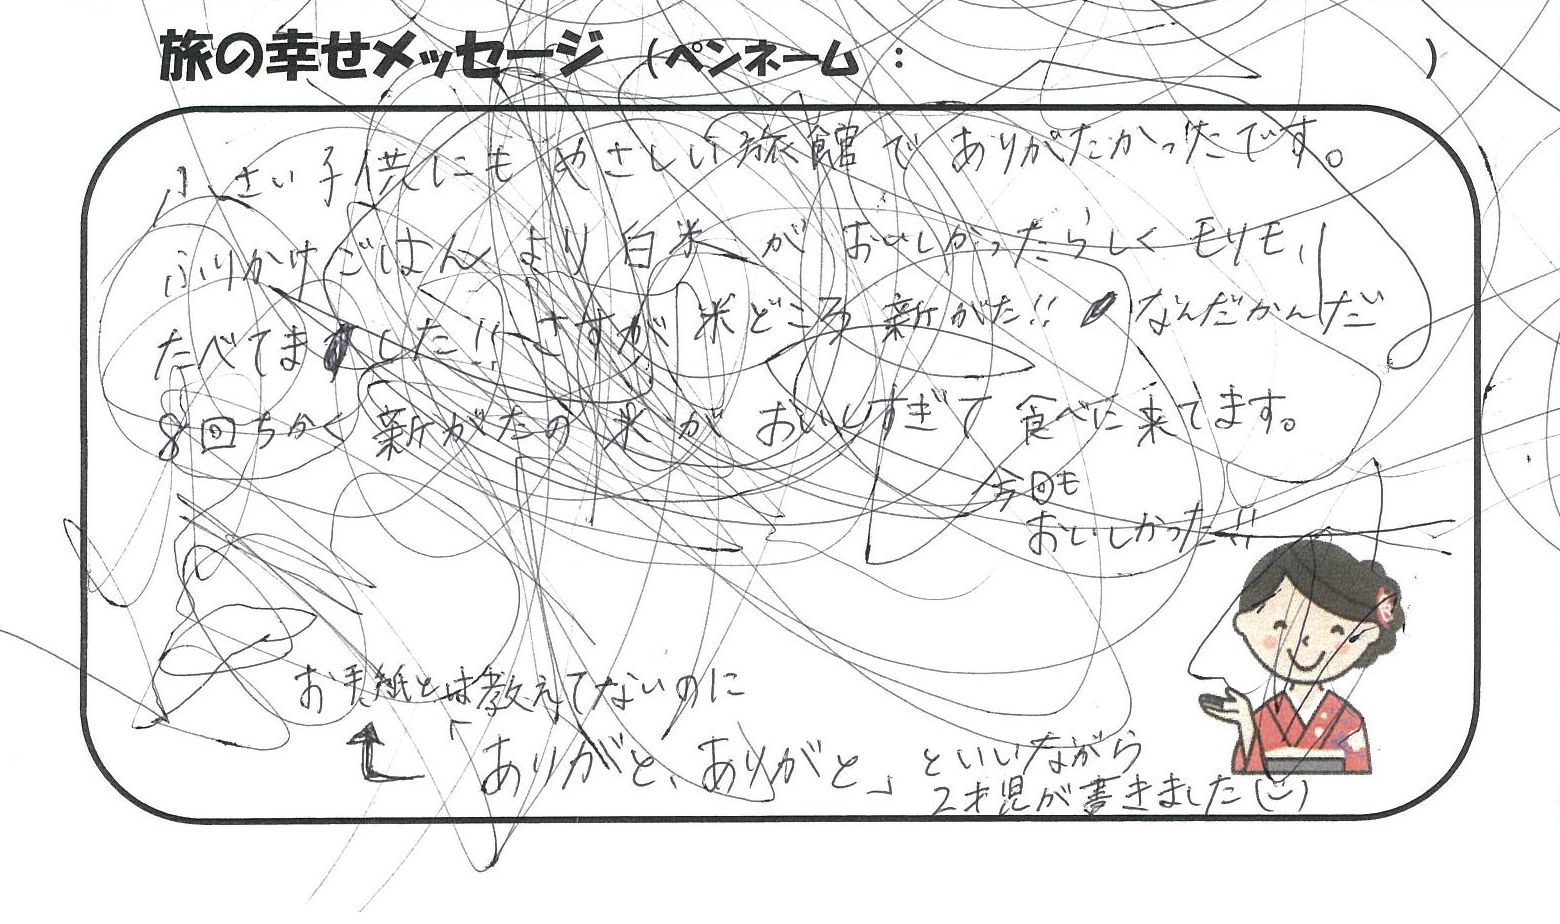 旅の幸せメッセージ （ペンネーム：　　　）
小さい子供にもやさしい旅館でありがたかったです。
ふりかけごはんより白米がおいしかったらしくモリモリ
たべてました!! さすが米どころ新がた!! なんだかんだ
8回ちかく新がたの米がおいしすぎて食べに来てます。
今回も
おいしかった!!
お手紙とは教えてないのに
「ありがと、ありがと」といいながら
2才児が書きました